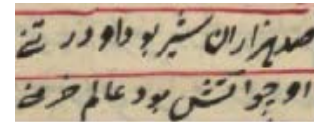 صد هزاران شیر بود او در تنی
او چو آتش بود عالم خرمنی